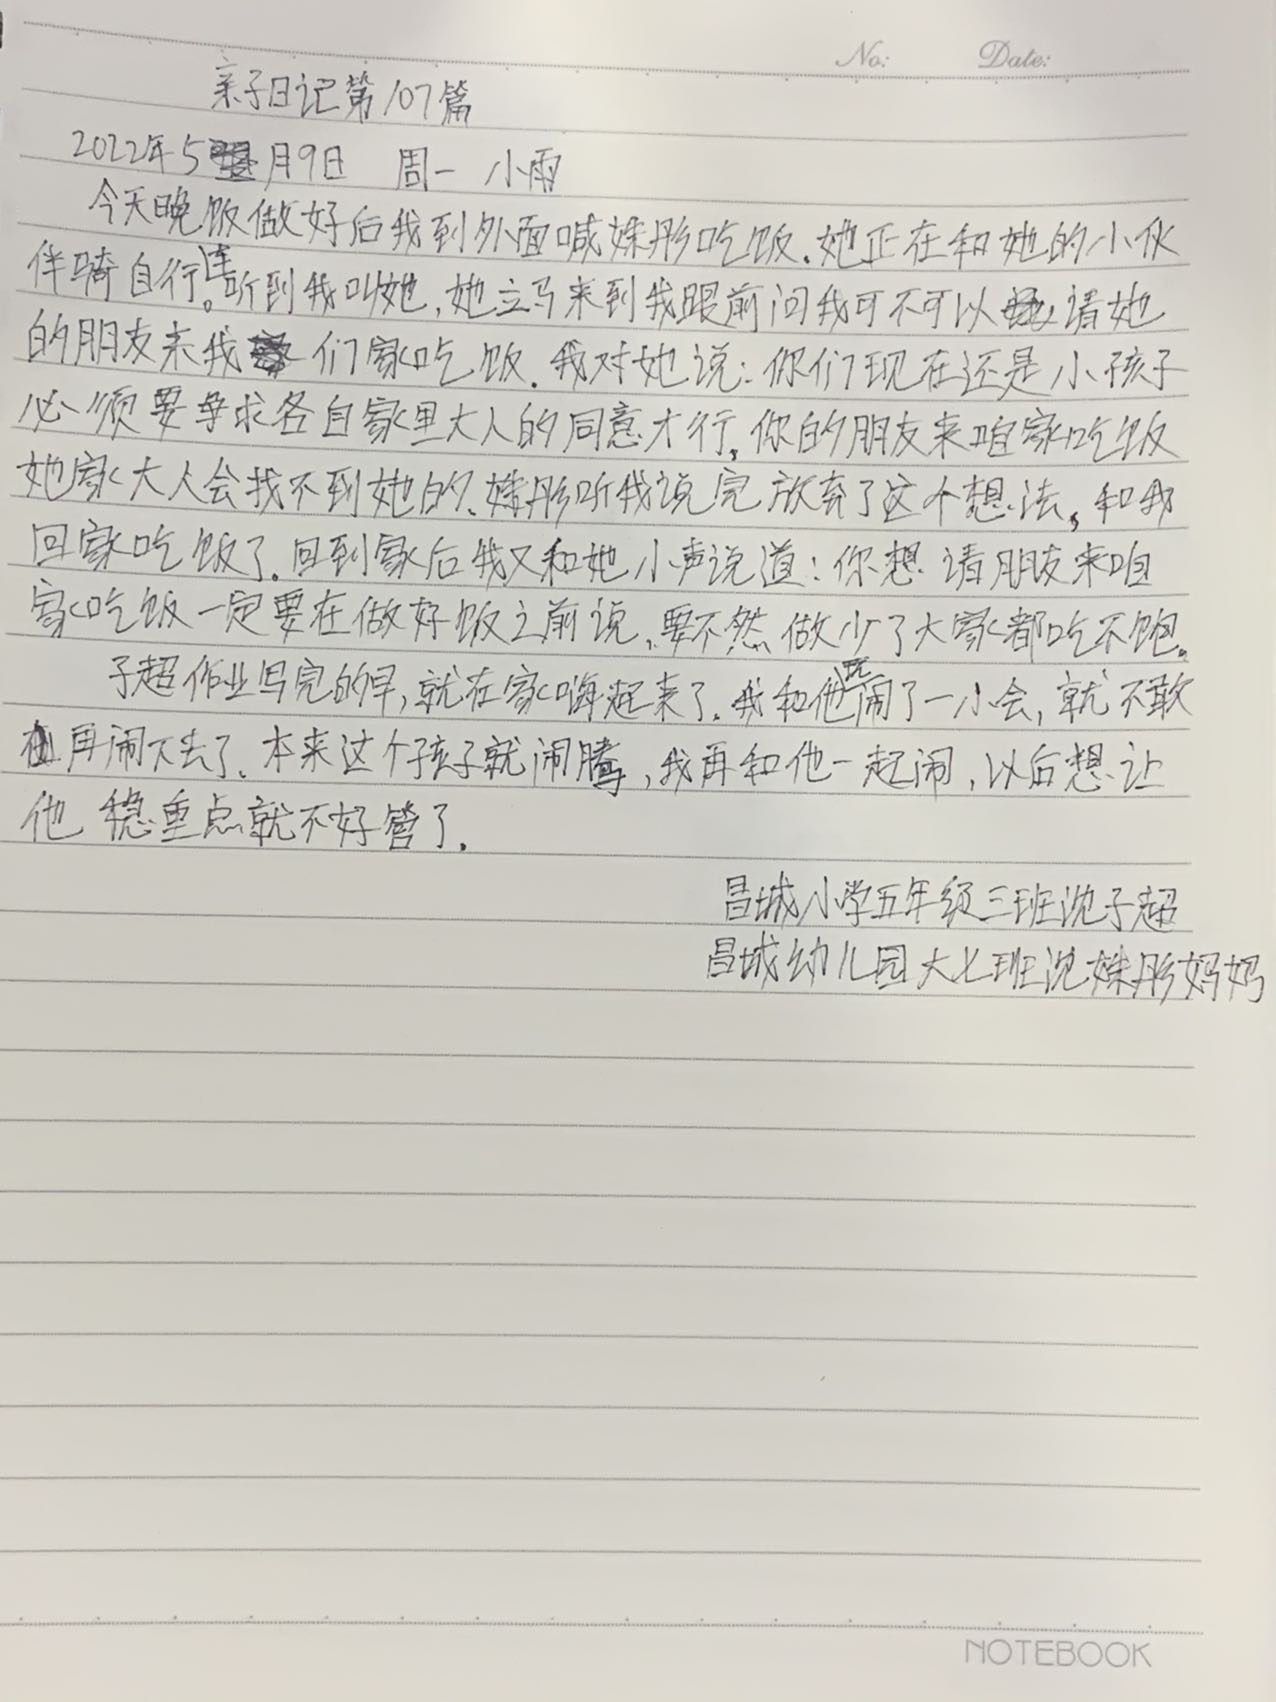 No:        Date:
亲子日记第107篇
2022年5月9日 周一 小雨
今天晚饭做好后我到外面喊姝彤吃饭.她正在和她的小伙
伴骑自行车。听到我叫她,她立马来到我跟前问我可不可以请她
的朋友来我们家吃饭.我对她说:你们现在还是小孩子
必须要争求各自家里大人的同意才行,你的朋友来咱家吃饭
她家大人会找不到她的.姝彤听我说完放弃了这个想法,和我
回家吃饭了.回到家后我又和她小声说道:你想请朋友来咱
家吃饭一定要在做好饭之前说,要不然做少了大家都吃不饱。
子超作业写完的早,就在家嗨起来了.我和他玩闹了一小会,就不敢
再闹下去了.本来这个孩子就闹腾,我再和他一起闹,以后想让
他稳重点就不好管了.
昌城小学五年级三班沈子超
昌城幼儿园大七班沈姝彤妈妈
NOTEBOOK